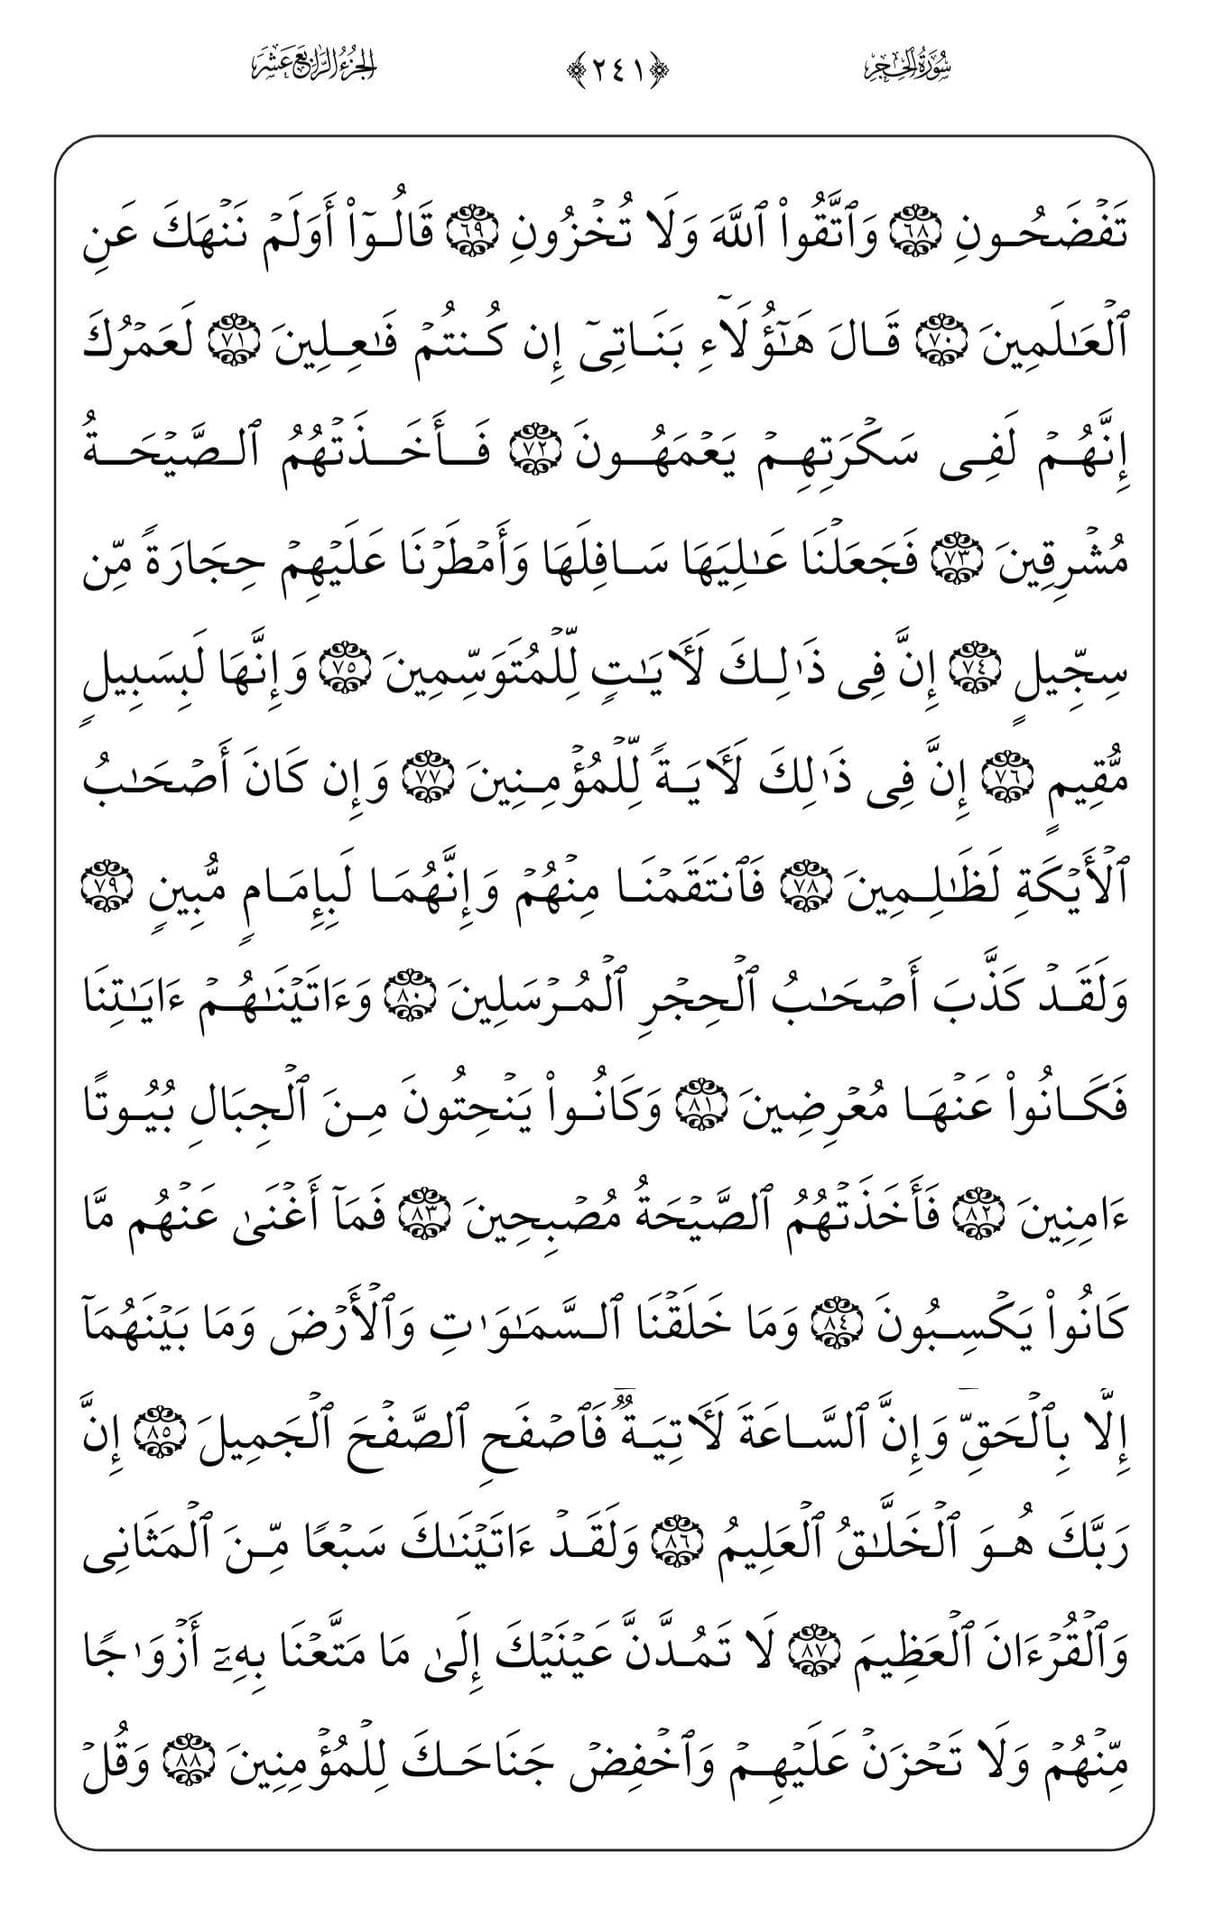 سُورَةُ الحِجْرِ ﴿٢٤١﴾ الجُزْءُ الرَّابِعَ عَشَرَ
تَفۡضَحُونِ ٦٨ وَٱتَّقُواْ ٱللَّهَ وَلَا تُخۡزُونِ ٦٩ قَالُوٓاْ أَوَلَمۡ نَنۡهَكَ عَنِ
ٱلۡعَٰلَمِينَ ٧٠ قَالَ هَٰٓؤُلَآءِ بَنَاتِيٓ إِن كُنتُمۡ فَٰعِلِينَ ٧١ لَعَمۡرُكَ
إِنَّهُمۡ لَفِي سَكۡرَتِهِمۡ يَعۡمَهُونَ ٧٢ فَأَخَذَتۡهُمُ ٱلصَّيۡحَةُ
مُشۡرِقِينَ ٧٣ فَجَعَلۡنَا عَٰلِيَهَا سَافِلَهَا وَأَمۡطَرۡنَا عَلَيۡهِمۡ حِجَارَةٗ مِّن
سِجِّيلٍ ٧٤ إِنَّ فِي ذَٰلِكَ لَأٓيَٰتٖ لِّلۡمُتَوَسِّمِينَ ٧٥ وَإِنَّهَا لَبِسَبِيلٖ
مُّقِيمٍ ٧٦ إِنَّ فِي ذَٰلِكَ لَأٓيَةٗ لِّلۡمُؤۡمِنِينَ ٧٧ وَإِن كَانَ أَصۡحَٰبُ
ٱلۡأَيۡكَةِ لَظَٰلِمِينَ ٧٨ فَٱنتَقَمۡنَا مِنۡهُمۡ وَإِنَّهُمَا لَبِإِمَامٖ مُّبِينٖ ٧٩
وَلَقَدۡ كَذَّبَ أَصۡحَٰبُ ٱلۡحِجۡرِ ٱلۡمُرۡسَلِينَ ٨٠ وَءَاتَيۡنَٰهُمۡ ءَايَٰتِنَا
فَكَانُواْ عَنۡهَا مُعۡرِضِينَ ٨١ وَكَانُواْ يَنۡحِتُونَ مِنَ ٱلۡجِبَالِ بُيُوتًا
ءَامِنِينَ ٨٢ فَأَخَذَتۡهُمُ ٱلصَّيۡحَةُ مُصۡبِحِينَ ٨٣ فَمَآ أَغۡنَىٰ عَنۡهُم مَّا
كَانُواْ يَكۡسِبُونَ ٨٤ وَمَا خَلَقۡنَا ٱلسَّمَٰوَٰتِ وَٱلۡأَرۡضَ وَمَا بَيۡنَهُمَآ
إِلَّا بِٱلۡحَقِّۗ وَإِنَّ ٱلسَّاعَةَ لَأٓتِيَةٞۖ فَٱصۡفَحِ ٱلصَّفۡحَ ٱلۡجَمِيلَ ٨٥ إِنَّ
رَبَّكَ هُوَ ٱلۡخَلَّٰقُ ٱلۡعَلِيمُ ٨٦ وَلَقَدۡ ءَاتَيۡنَٰكَ سَبۡعٗا مِّنَ ٱلۡمَثَانِي
وَٱلۡقُرۡءَانَ ٱلۡعَظِيمَ ٨٧ لَا تَمُدَّنَّ عَيۡنَيۡكَ إِلَىٰ مَا مَتَّعۡنَا بِهِۦٓ أَزۡوَٰجٗا
مِّنۡهُمۡ وَلَا تَحۡزَنۡ عَلَيۡهِمۡ وَٱخۡفِضۡ جَنَاحَكَ لِلۡمُؤۡمِنِينَ ٨٨ وَقُلۡ